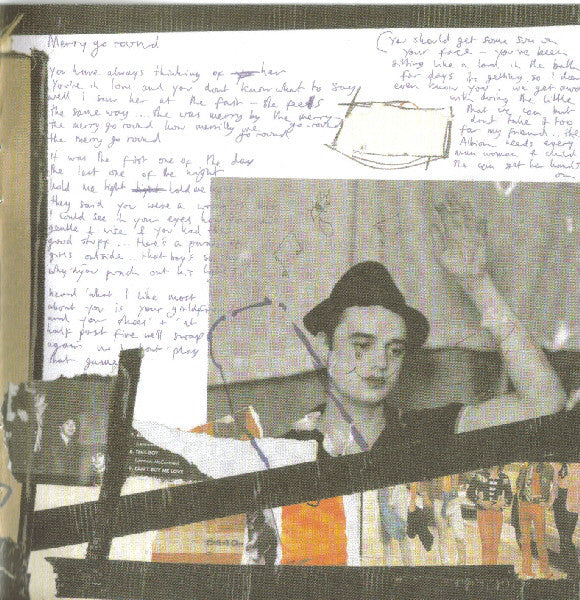 Merry go round
You have always thinking of her
You're in love and you dont know what to say
well I saw her at the fast the feels
the same way... she was merry by the merry go round
the merry go round how merrily we go round
the merry go round
It was the first one of the day
the last one of the night
hold me tight hold me
they said you were a
I could see in your eyes how
gentle & wise if you had the
good stuff... Here's a
girls outside... that boy's
why you punch out his
heard 'what I like most
about you is your
and your shoes' & at
half past five we'll swap
again we won't play
that game
(You should get some sun on
your face - you've been
sitting like a lord in the bath
for days its getting so I dont
even know you.. we get away
with doing the little
that we can but
dont take it too
far my friend.. the
Albion needs every
man woman & child
she can get her hands
on
8. THIS BOY
(Lennon-McCartney)
9. CAN'T BUY ME LOVE